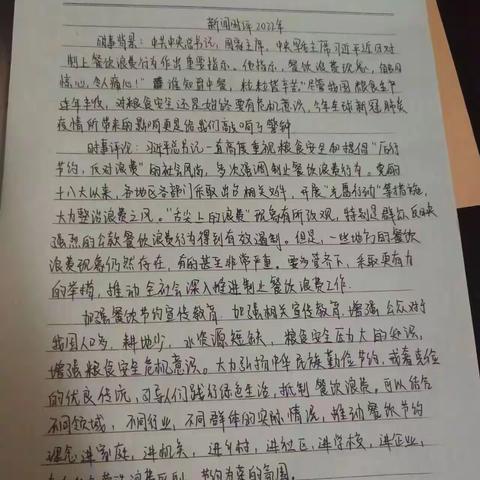 新闻时评2022年
时事背景：中共中央总书记，国家主席，中央军委主席习近平近日对
制止餐饮浪费行为作出重要指示。他指示，餐饮浪费现象，触目
惊心，令人痛心！“谁知盘中餐，粒粒皆辛苦”尽管我国粮食生产
连年丰收，对粮食安全还是始终要有危机意识，今年全球新冠肺炎
疫情所带来的影响更是给我们敲响了警钟
时事评论：习近平总书记一直高度重视粮食安全和提倡“厉行
节约，反对浪费”的社会风尚，多次强调制止餐饮浪费行为。党的
十八大以来，各地区各部门采取出台相关文件，开展“光盘行动”等措施，
大力整治浪费之风。“舌尖上的浪费”现象有所改观，特别是群众反映
强烈的公款餐饮浪费行为得到有效遏制。但是，一些地方的餐饮
浪费现象仍然存在，有的甚至非常严重。要多管齐下，采取更有力
的举措，推动全社会深入推进制止餐饮浪费工作。
加强餐饮节约宣传教育。加强相关宣传教育，增强公众对于
我国人口多，耕地少，水资源短缺，粮食安全压力大的知识，
增强粮食安全危机意识。大力弘扬中华民族勤俭节约，艰苦
的优良传统，引导人们践行绿色生活，抵制餐饮浪费，可以结合
不同领域，不同行业，不同群体的实际情况，推动餐饮节约
理念进家庭，进机关，进乡村，进社区，进学校，进企业，
节约为荣的氛围。